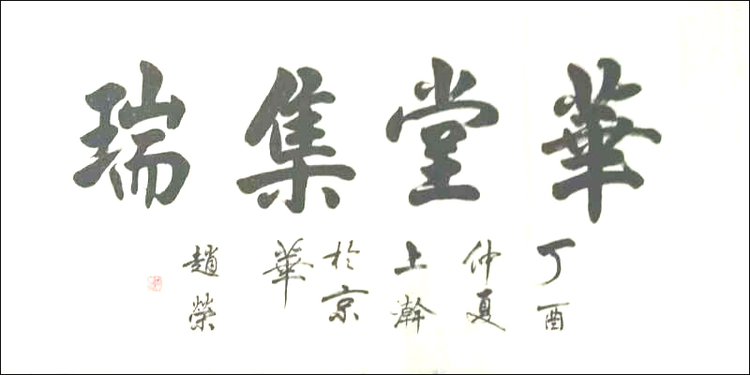 華堂集瑞
丁酉
仲夏
上澣
於京
華
趙榮